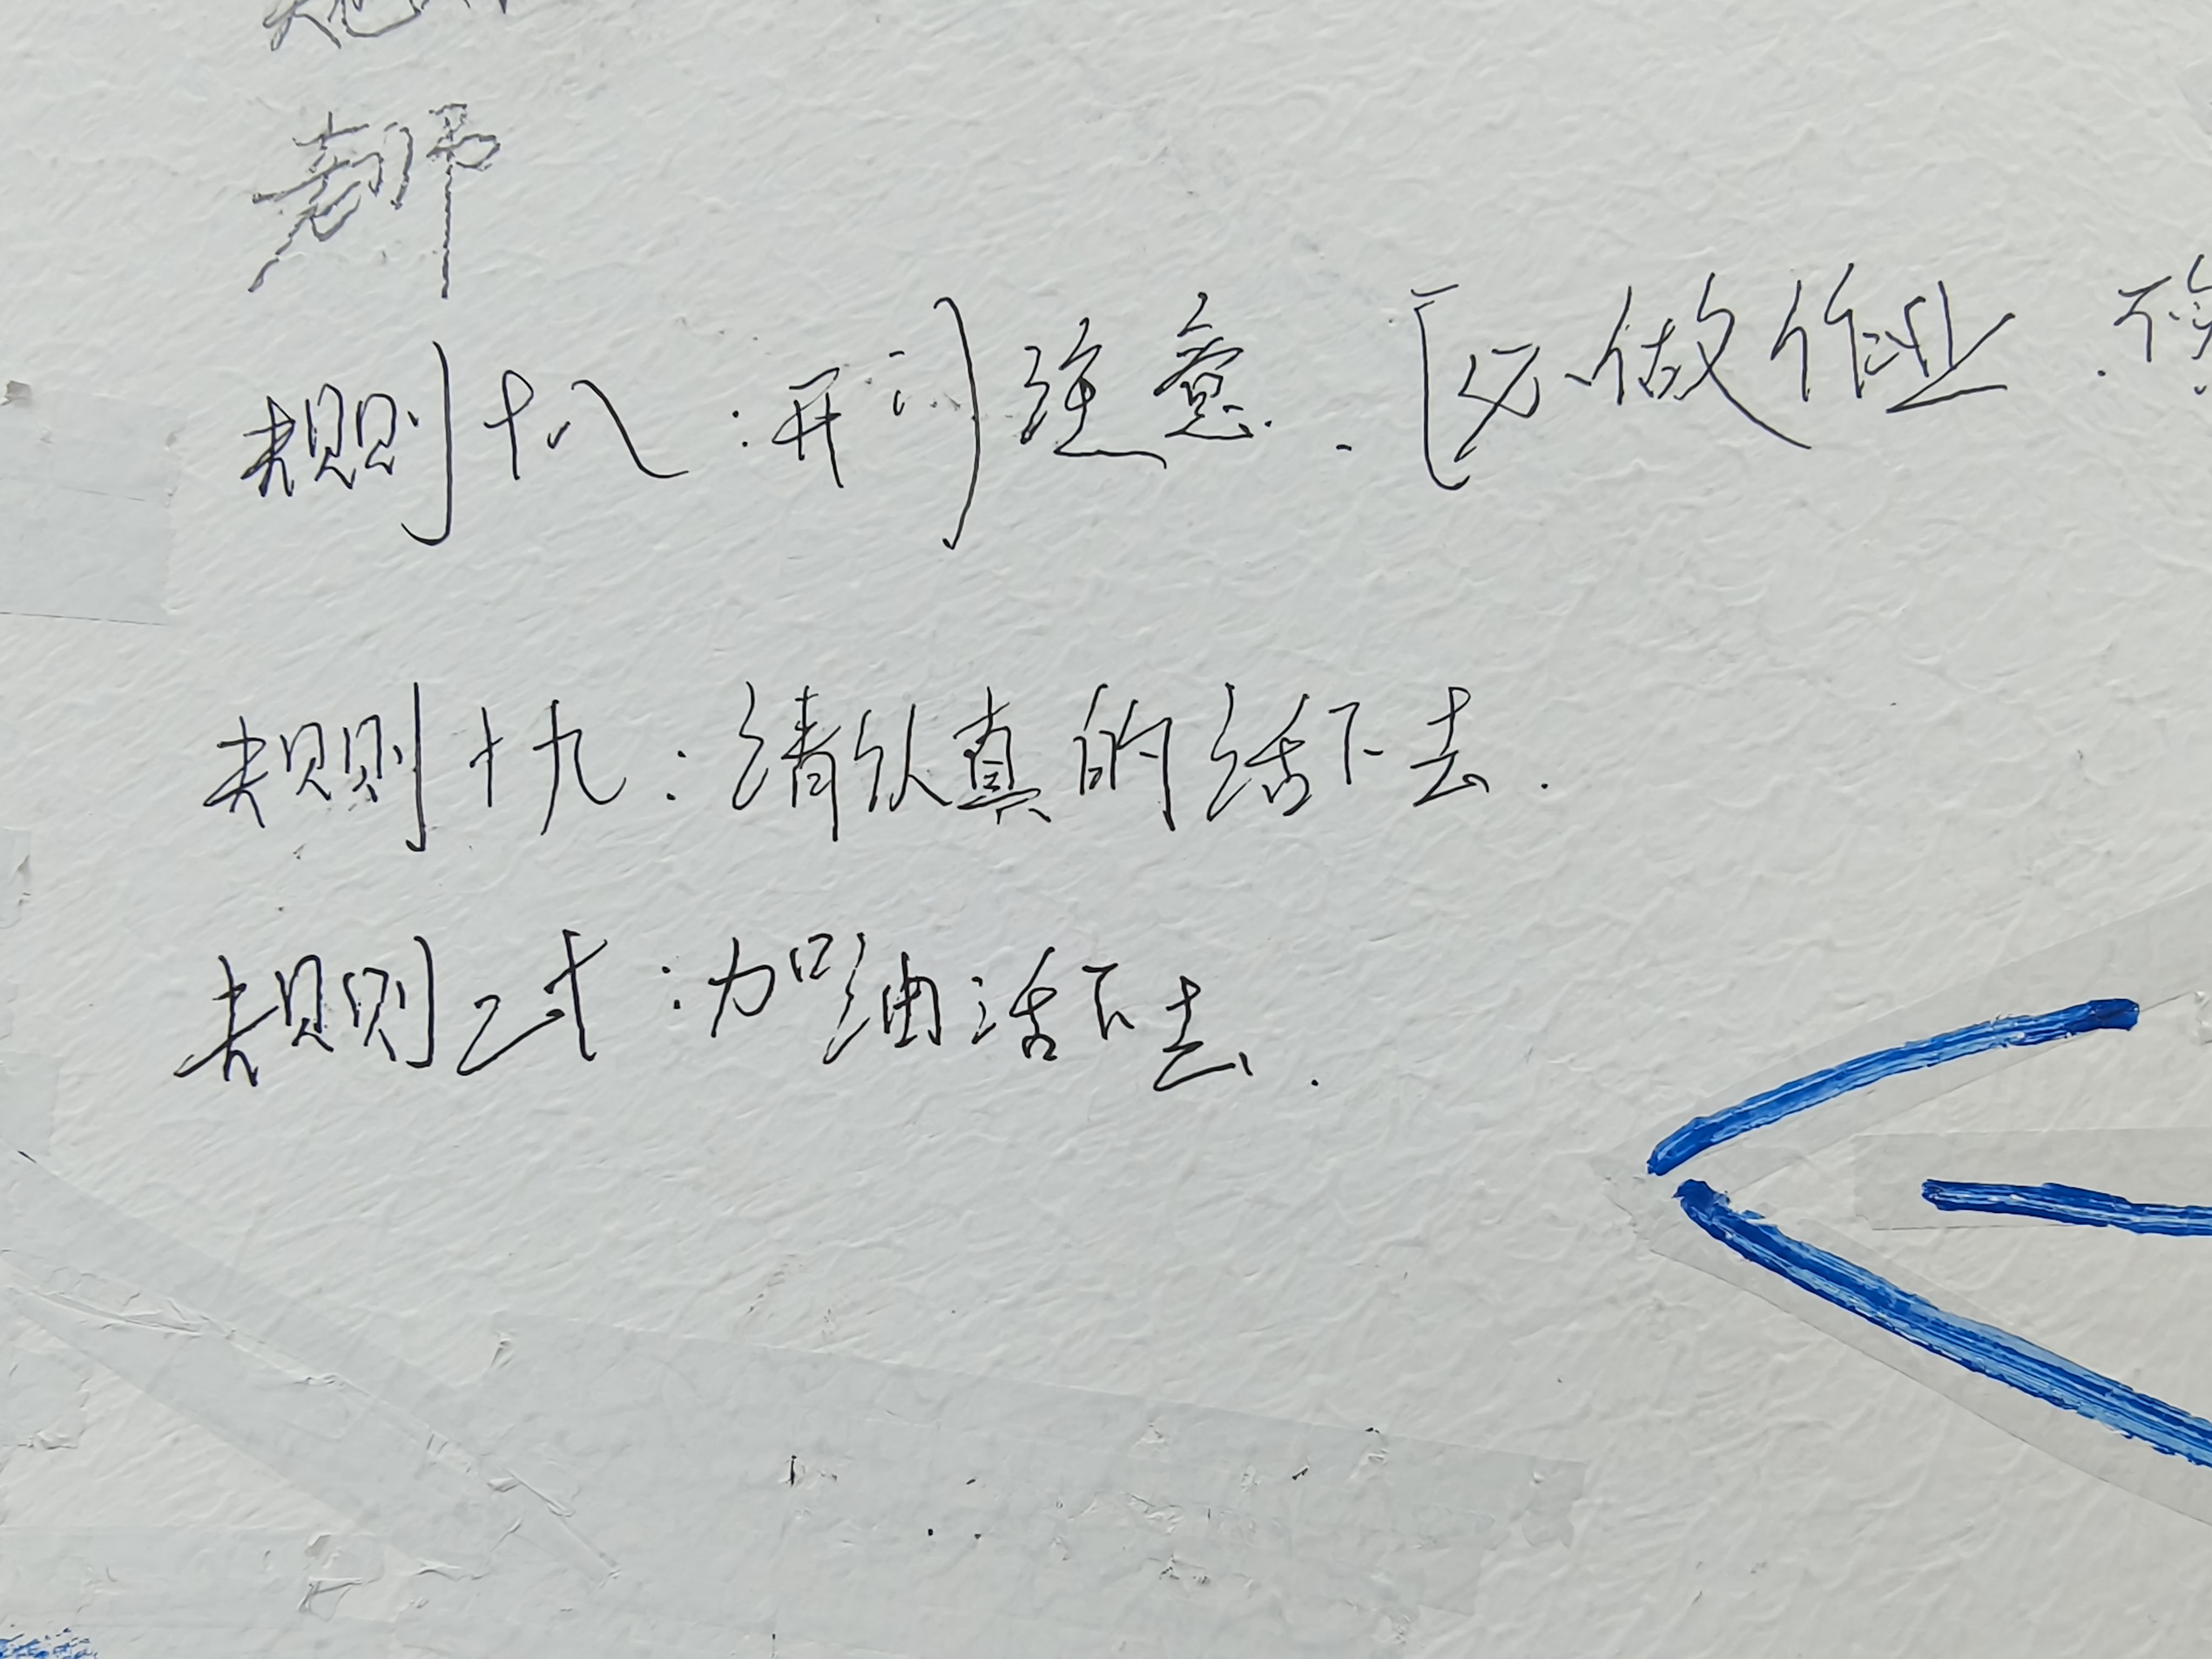 老师
规则十八：开门注意.医必做作业.不
规则十九：请认真的活下去.
规则二十：加油活下去.